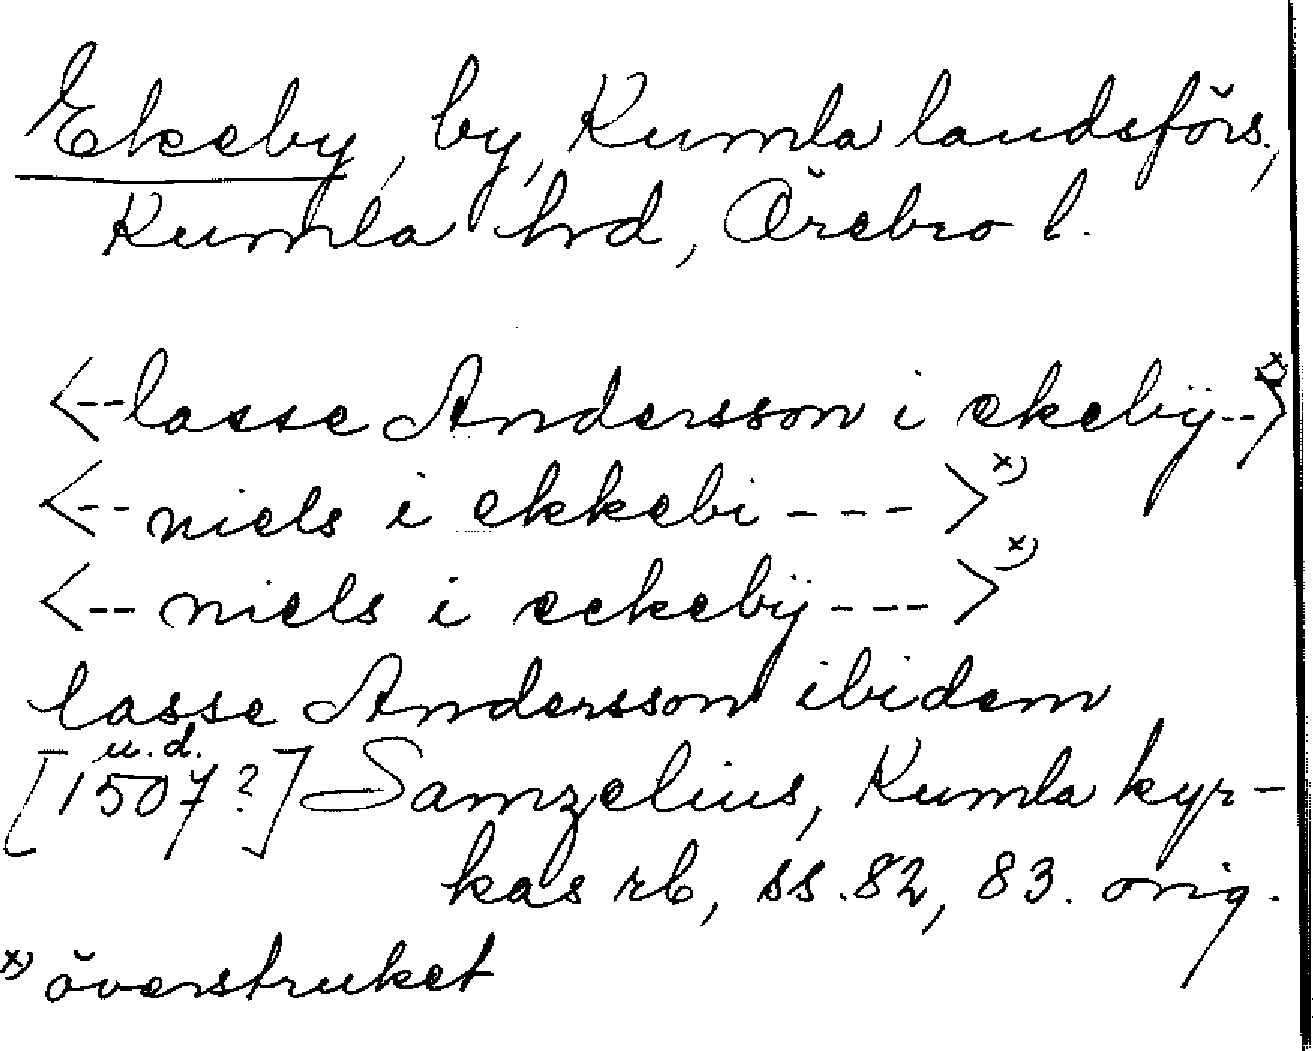 Ekeby, by, Kumla landsförs.,
Kumla hd, Örebro l.
<--lasse Andersson i ekebÿ--> x)
<--niels i ekkebi---> x)
<--niels i eckebÿ---> x)
lasse Andersson ibidem
u.d.
[1507?] Samzelius, Kumla kyr-
kas rb, ss. 82, 83. orig.
x) överstruket